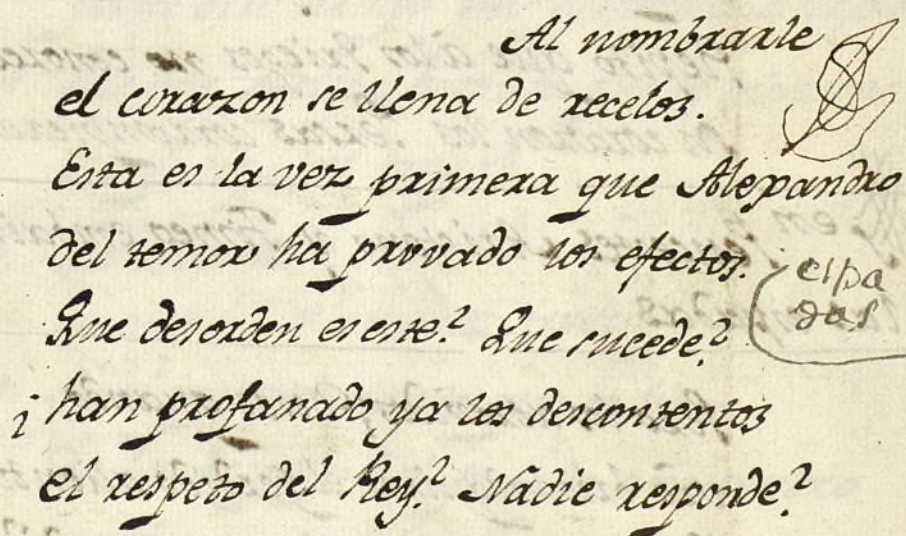 Al nombrarle
el corazon se llena de recelos.
Esta es la vez primera que Alexandro
del temor ha provado los efectos.
espa
das
Que desorden es este? Que sucede?
¡ han profanado ya los descontentos
el respeto del Rey? Nadie responde?